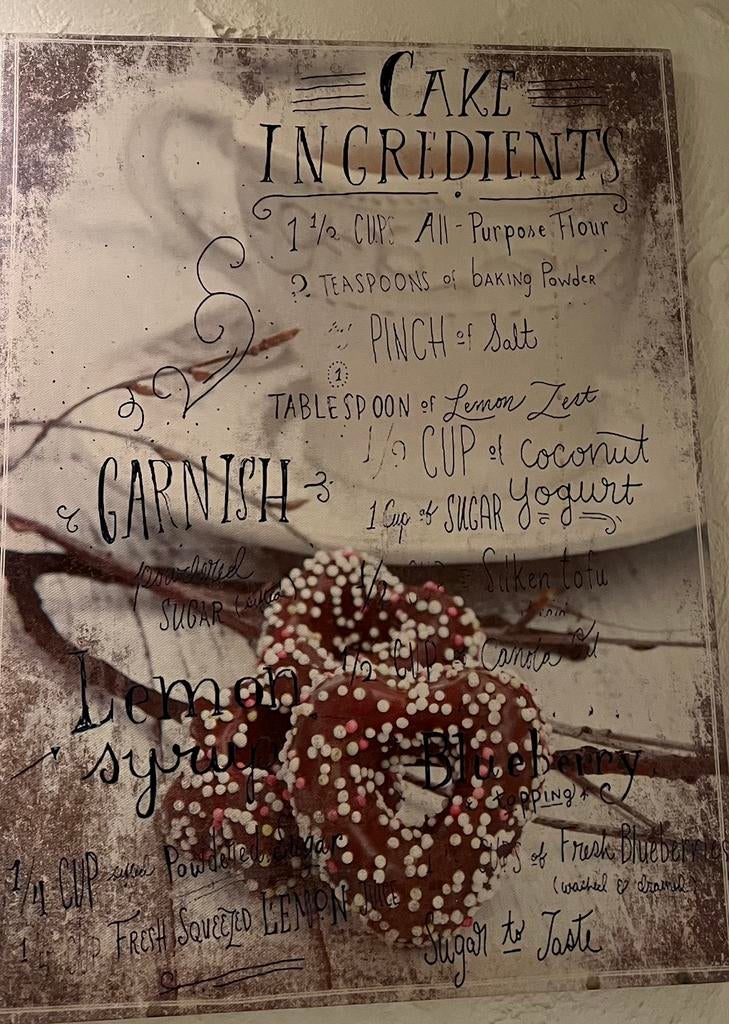 CAKE
INGREDIENTS
1 1/2 CUPS All-Purpose Flour
2 TEASPOONS of bAKING Powder
PINCH of Salt
1
TABLESPOON of Lemon Zest
1/2 CUP of coconut
Yogurt
1 Cup of SUGAR
1/2 CUP Silken tofu
1/2 CUP Canola Oil
GARNISH
powdered
SUGAR (sifted)
Lemon
syrup
1/4 CUP sifted Powdered Sugar
1/4 CUP FRESH SQUEEZED LEMON JUICE
Blueberry
topping
CUPS of Fresh Blueberries
(washed & drained)
Sugar to Taste